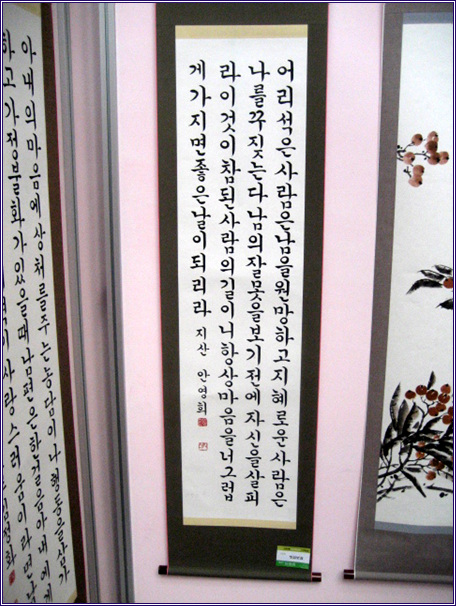 어리석은사람은남을원망하고지혜로운사람은
나를꾸짓는다남의잘못을보기전에자신을살피
라이것이참된사람의길이니항상마음을너그럽
게가지면좋은날이되리라 지산 안영희
아내의마음에상처를주는농담이나행동을삼가
하고가정불화가있을때남편은한걸음아내에게
이사랑스러움이라면